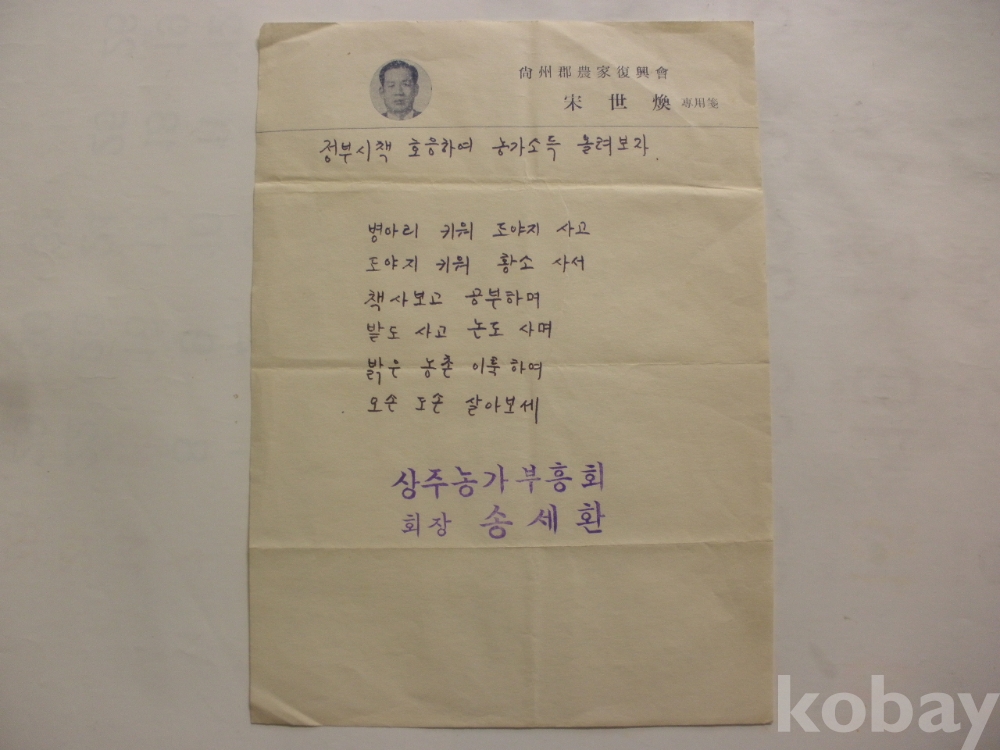 尙州郡農家復興會
宋世煥 專用箋
정부시책 호응하여 농가소득 올려보자.
병아리 키워 도야지 사고
도야지 키워 황소 사서
책사보고 공부하며
밭도 사고 논도 사며
밝은 농촌 이룩하여
오손 도손 살아보세
상주농가부흥회
회장 송세환
kobay